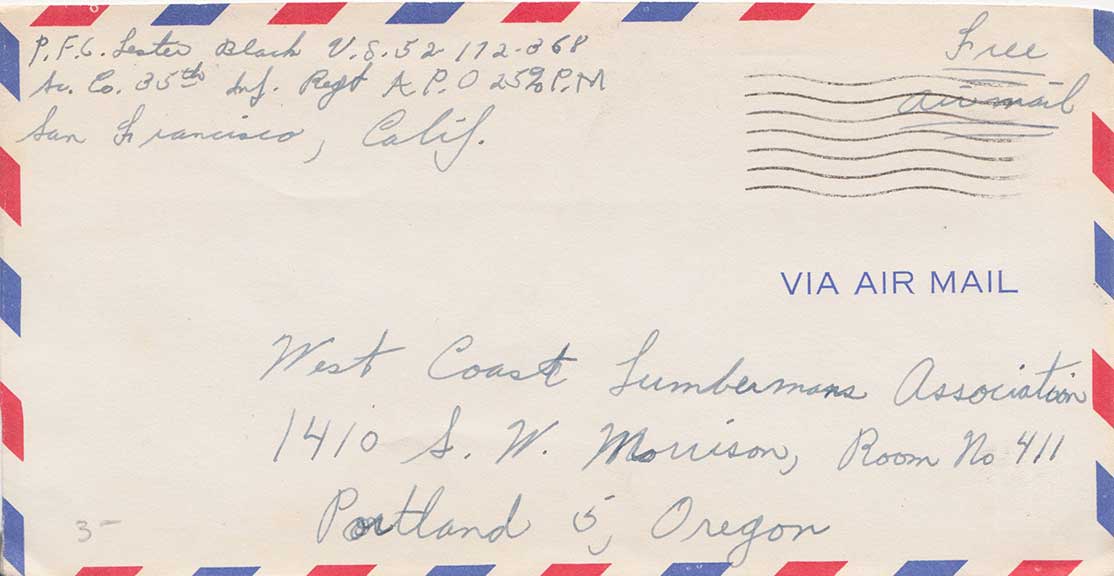 P.F.C. Lester Black U.S. 52 172-368
Sv. Co. 35th Inf. Regt A.P.O 25 % P.M
San Francisco, Calif.
Free
air mail
VIA AIR MAIL
West Coast Lumbermans Association
1410 S. W. Morrison, Room No 411
Portland 5, Oregon
3-